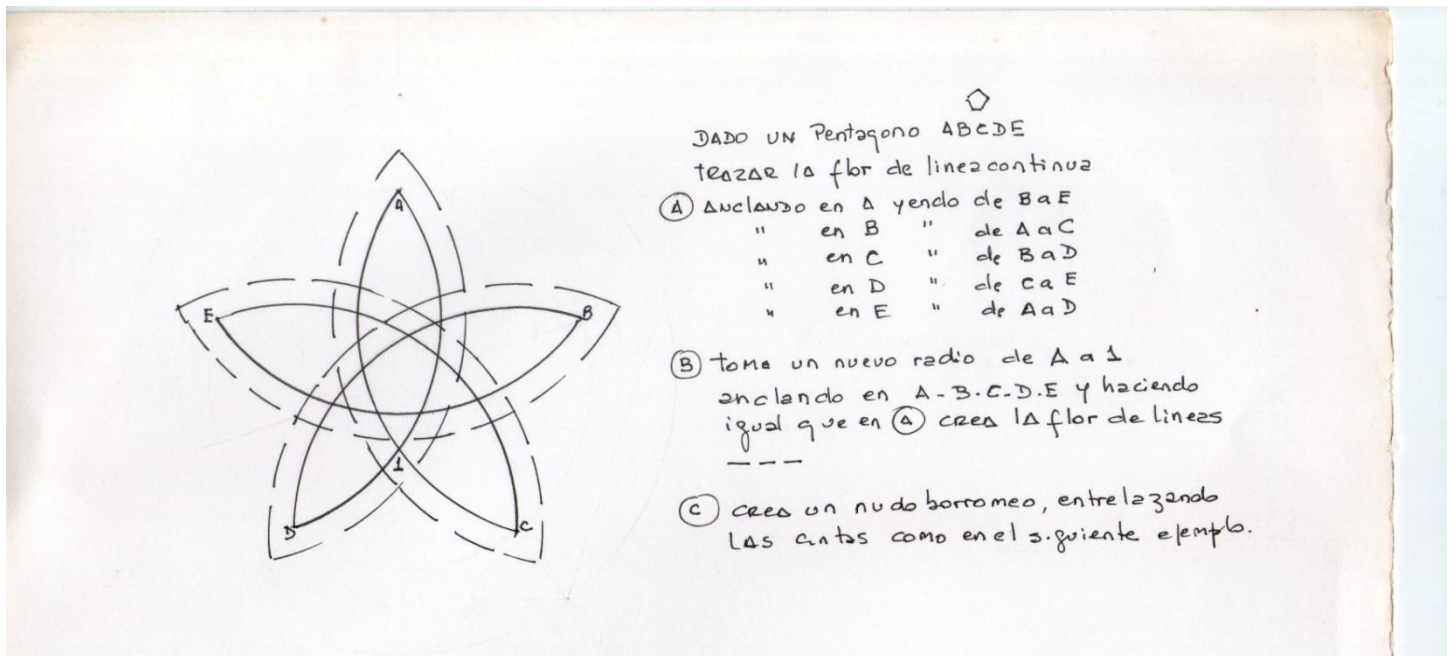 A
E
B
1
D
C
DADO UN Pentagono ABCDE
trazar la flor de linea continua
A Anclando en A yendo de B a E
" en B " de A a C
" en C " de B a D
" en D " de C a E
" en E " de A a D
B toma un nuevo radio de A a 1
anclando en A-B-C-D.E y haciendo
igual que en A crea la flor de lineas
C crea un nudo borromeo, entrelazando
las cintas como en el siguiente ejemplo.